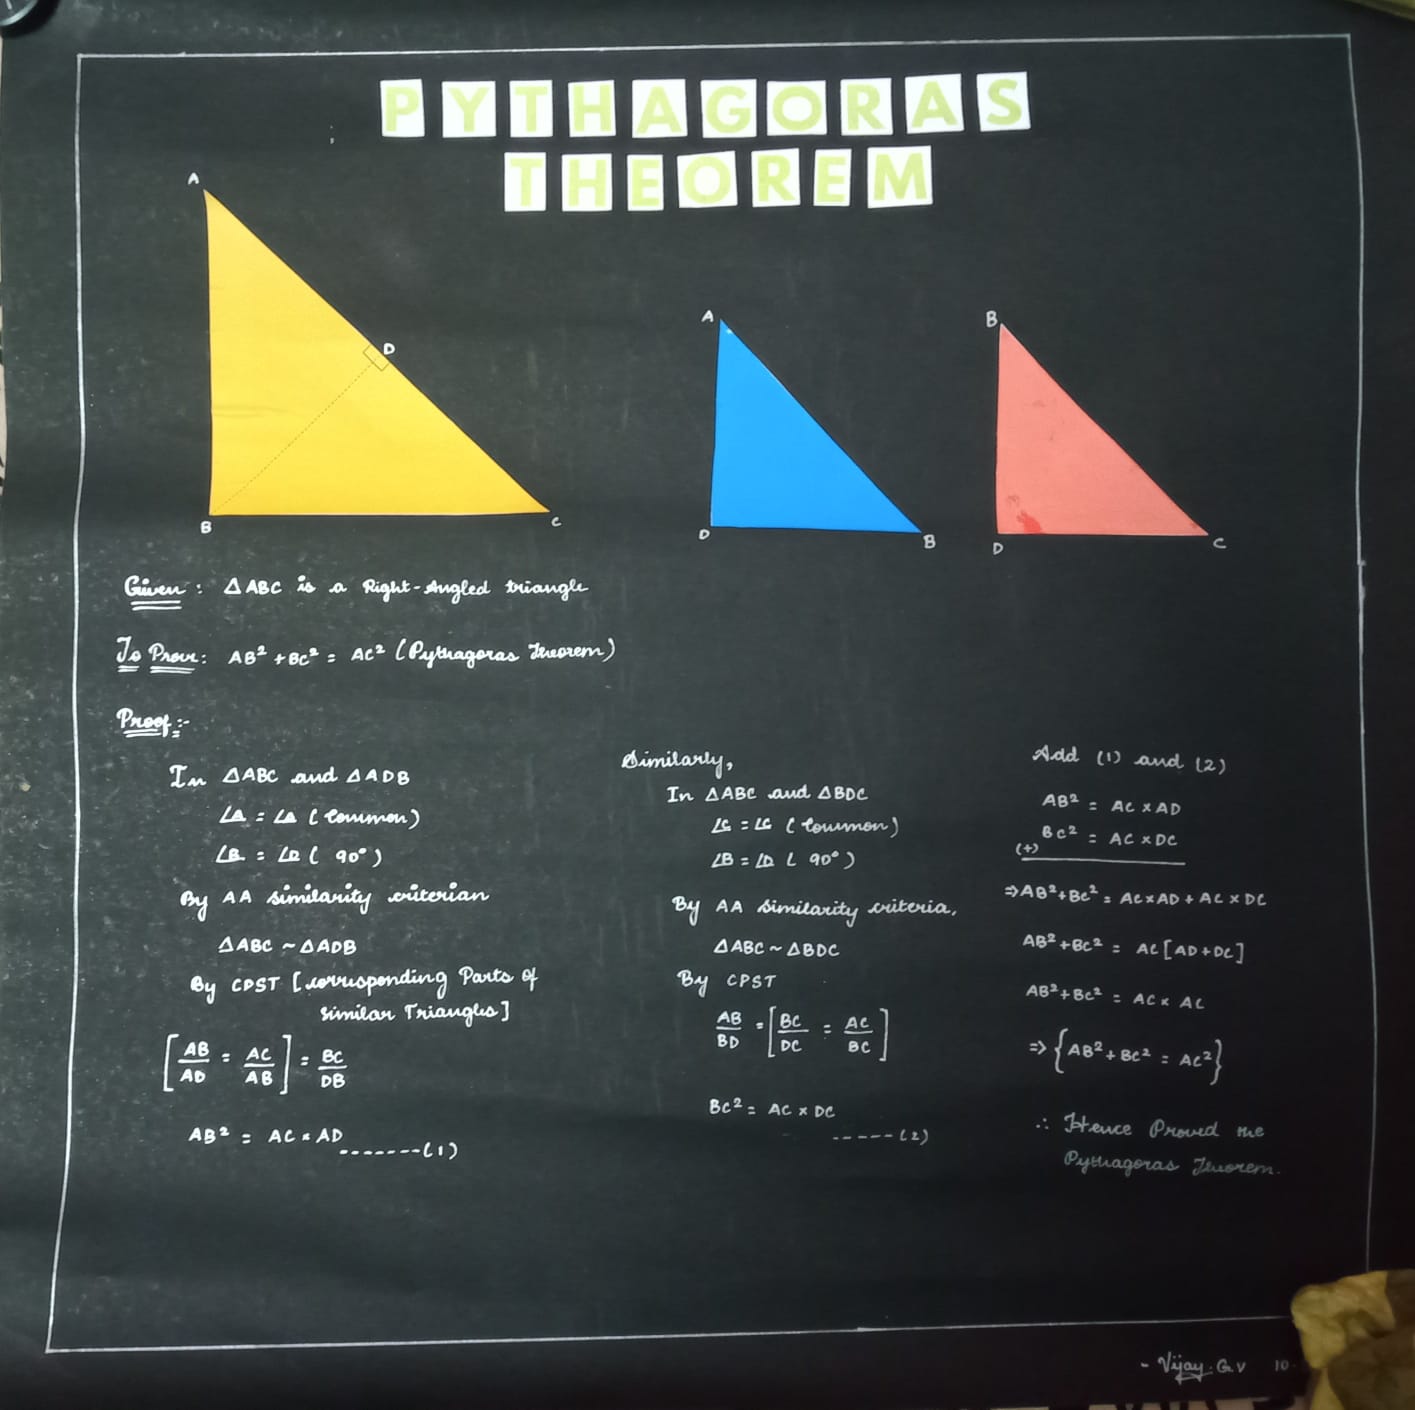 PYTHAGORAS
THEOREM
A
D
B
C
A
D
B
B
D
C
Given : △ABC is a Right-Angled triangle
To Prove: AB² + BC² = AC² (Pythagoras Theorem)
Proof :-
In △ABC and △ADB
∠A = ∠A (Common)
∠B = ∠D ( 90°)
By AA similarity criterian
△ABC ~ △ADB
By CPST [corresponding Parts of
similar Triangles]
[AB/AD = AC/AB] = BC/DB
AB² = AC × AD
-------(1)
Similarly,
In △ABC and △BDC
∠C = ∠C (Common)
∠B = ∠D ( 90°)
By AA similarity criteria,
△ABC ~ △BDC
By CPST
AB/BD = [BC/DC = AC/BC]
BC² = AC × DC
-----(2)
Add (1) and (2)
AB² = AC × AD
(+) BC² = AC × DC
⇒ AB²+BC² = AC×AD + AC × DC
AB²+BC² = AC[AD+DC]
AB²+BC² = AC× AC
⇒ {AB² + BC² = AC²}
∴ Hence Proved the
Pythagoras Theorem.
- Vijay. G.V 10